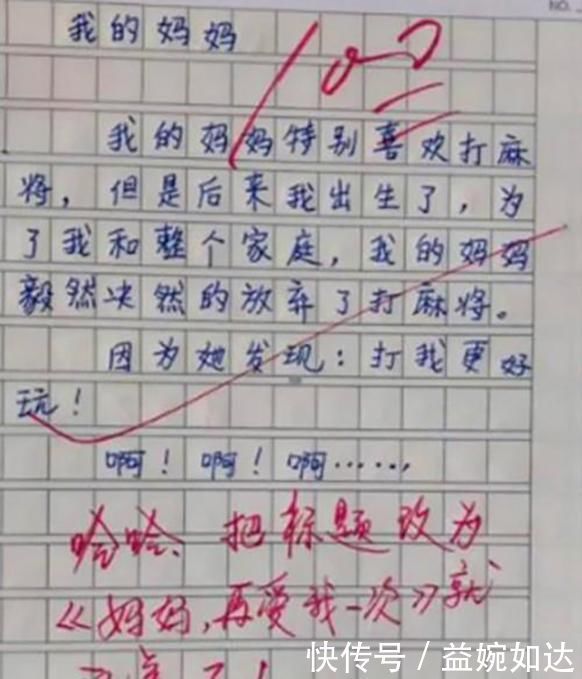 NO.
我的妈妈
100
我的妈妈特别喜欢打麻
将，但是后来我出生了，为
了我和整个家庭，我的妈妈
毅然决然的放弃了打麻将。
因为她发现：打我更好
玩！
啊！啊！啊……，
哈哈、把标题改为
《妈妈，再爱我一次》就
了！
快传号／益婉如达